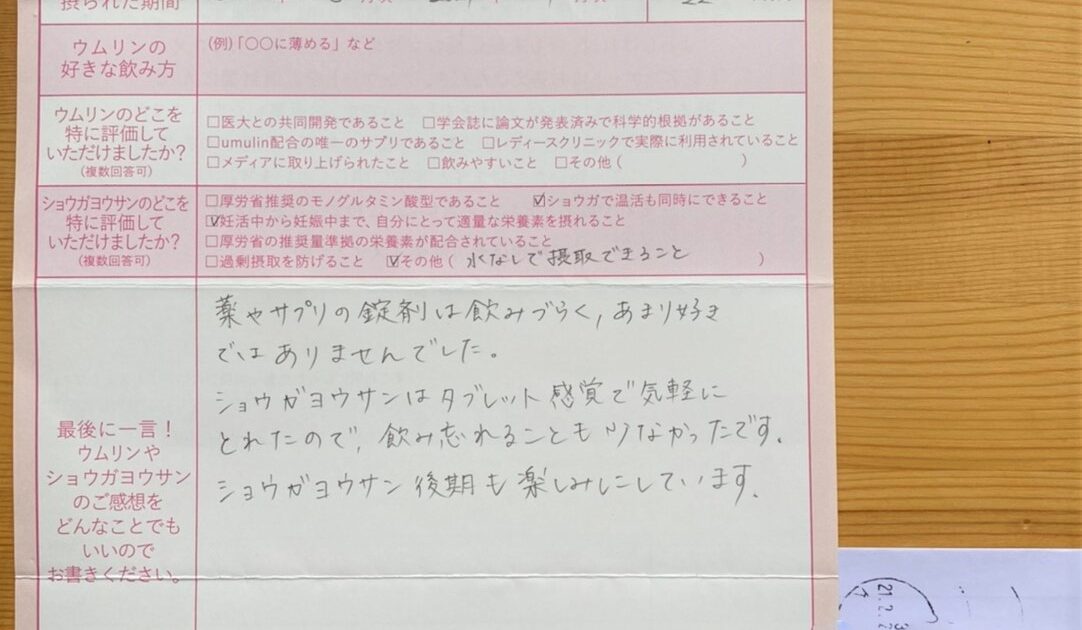 摂られた期間
ウムリンの
好きな飲み方
(例)「〇〇に薄める」など
ウムリンのどこを
特に評価して
いただけましたか?
(複数回答可)
□医大との共同開発であること □学会誌に論文が発表済みで科学的根拠があること
□umulin配合の唯一のサプリであること □レディースクリニックで実際に利用されていること
□メディアに取り上げられたこと □飲みやすいこと □その他( )
ショウガヨウサンのどこを
特に評価して
いただけましたか?
(複数回答可)
□厚労省推奨のモノグルタミン酸型であること ☑ショウガで温活も同時にできること
☑妊活中から妊娠中まで、自分にとって適量な栄養素を摂れること
□厚労省の推奨量準拠の栄養素が配合されていること
□過剰摂取を防げること ☑その他( 水なしで摂取できること )
最後に一言!
ウムリンや
ショウガヨウサン
のご感想を
どんなことでも
いいので
お書きください。
薬やサプリの錠剤は飲みづらく、あまり好き
ではありませんでした。
ショウガヨウサンはタブレット感覚で気軽に
とれたので、飲み忘れることも少なかったです。
ショウガヨウサン後期も楽しみにしています。